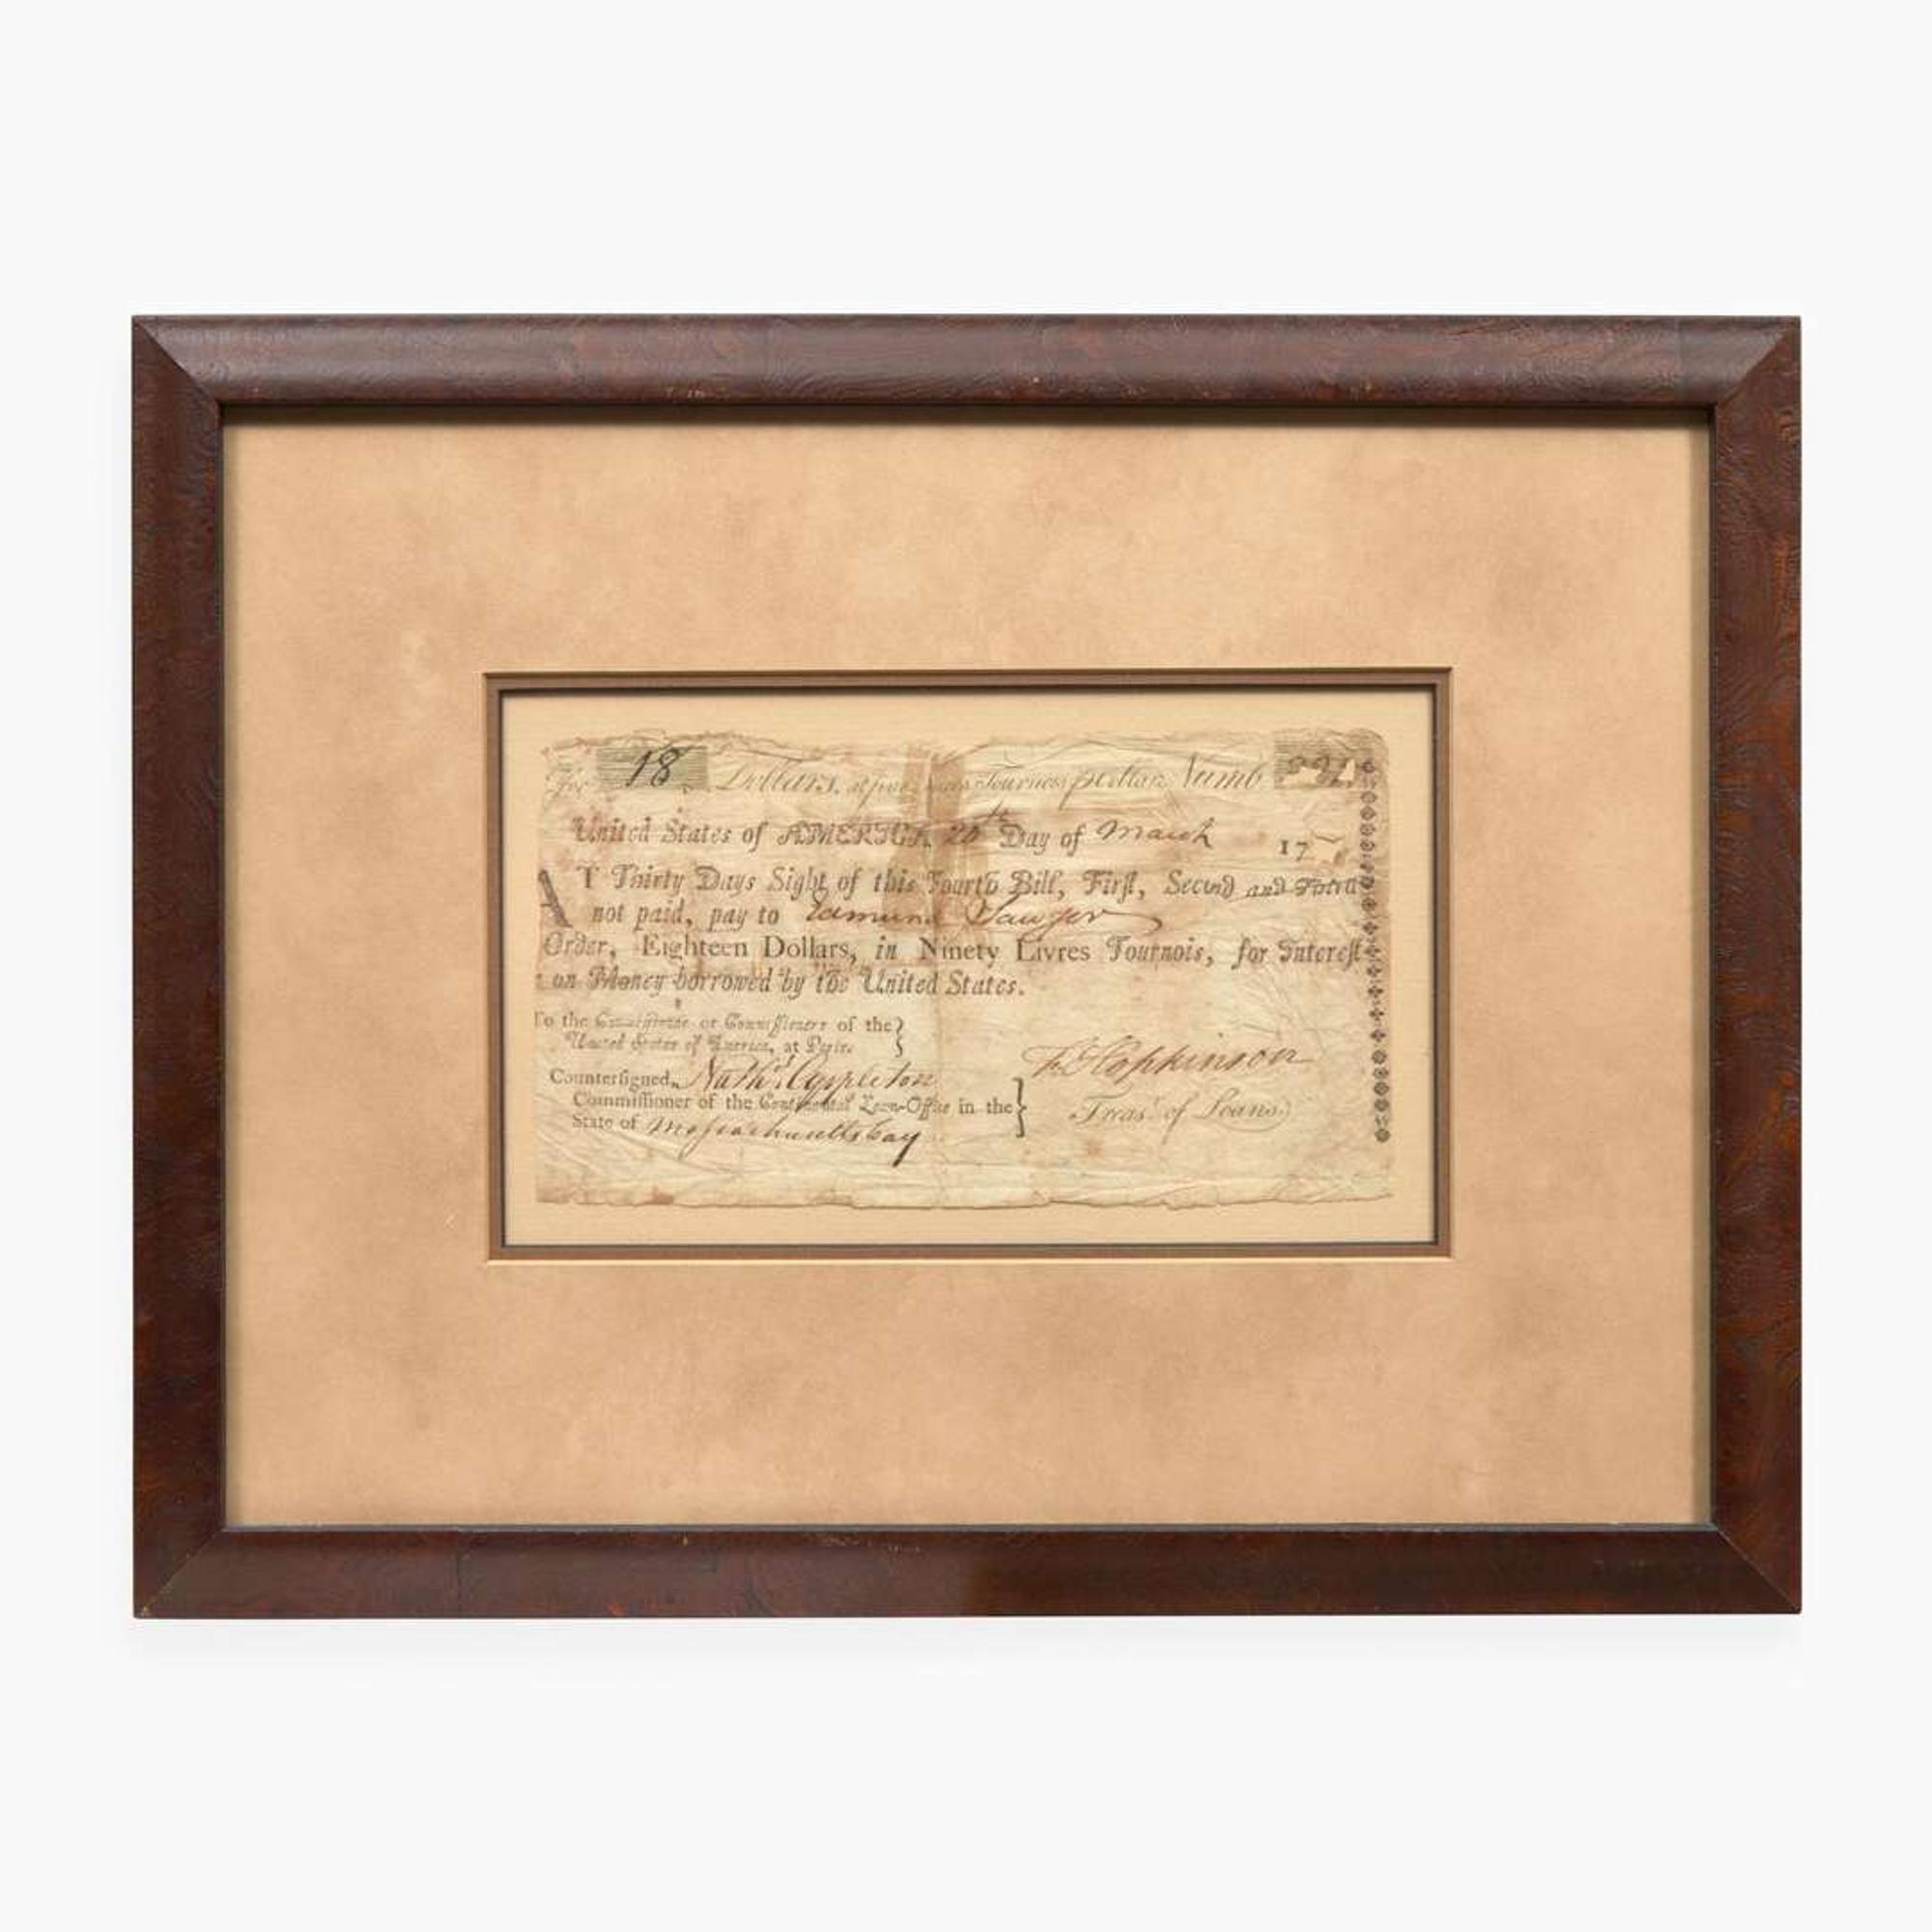 For 18 Dollars, at five Livres Tournois p Dollar Numb
United States of AMERICA 20th Day of March 17
AT Thirty Days Sight of this Fourth Bill, Firſt, Second and Third
not paid, pay to Edmund Sawyer
Order, Eighteen Dollars, in Ninety Livres Tournois, for Intereſt
on Money borrowed by the United States.
To the Commiſſioner or Commiſſioners of the }
United States of America, at Paris.
Counterſigned, Nathl. Appleton
Commiſſioner of the Continental Loan-Office in the }
State of Massachusetts bay
F. Hopkinson
Treasr. of Loans.